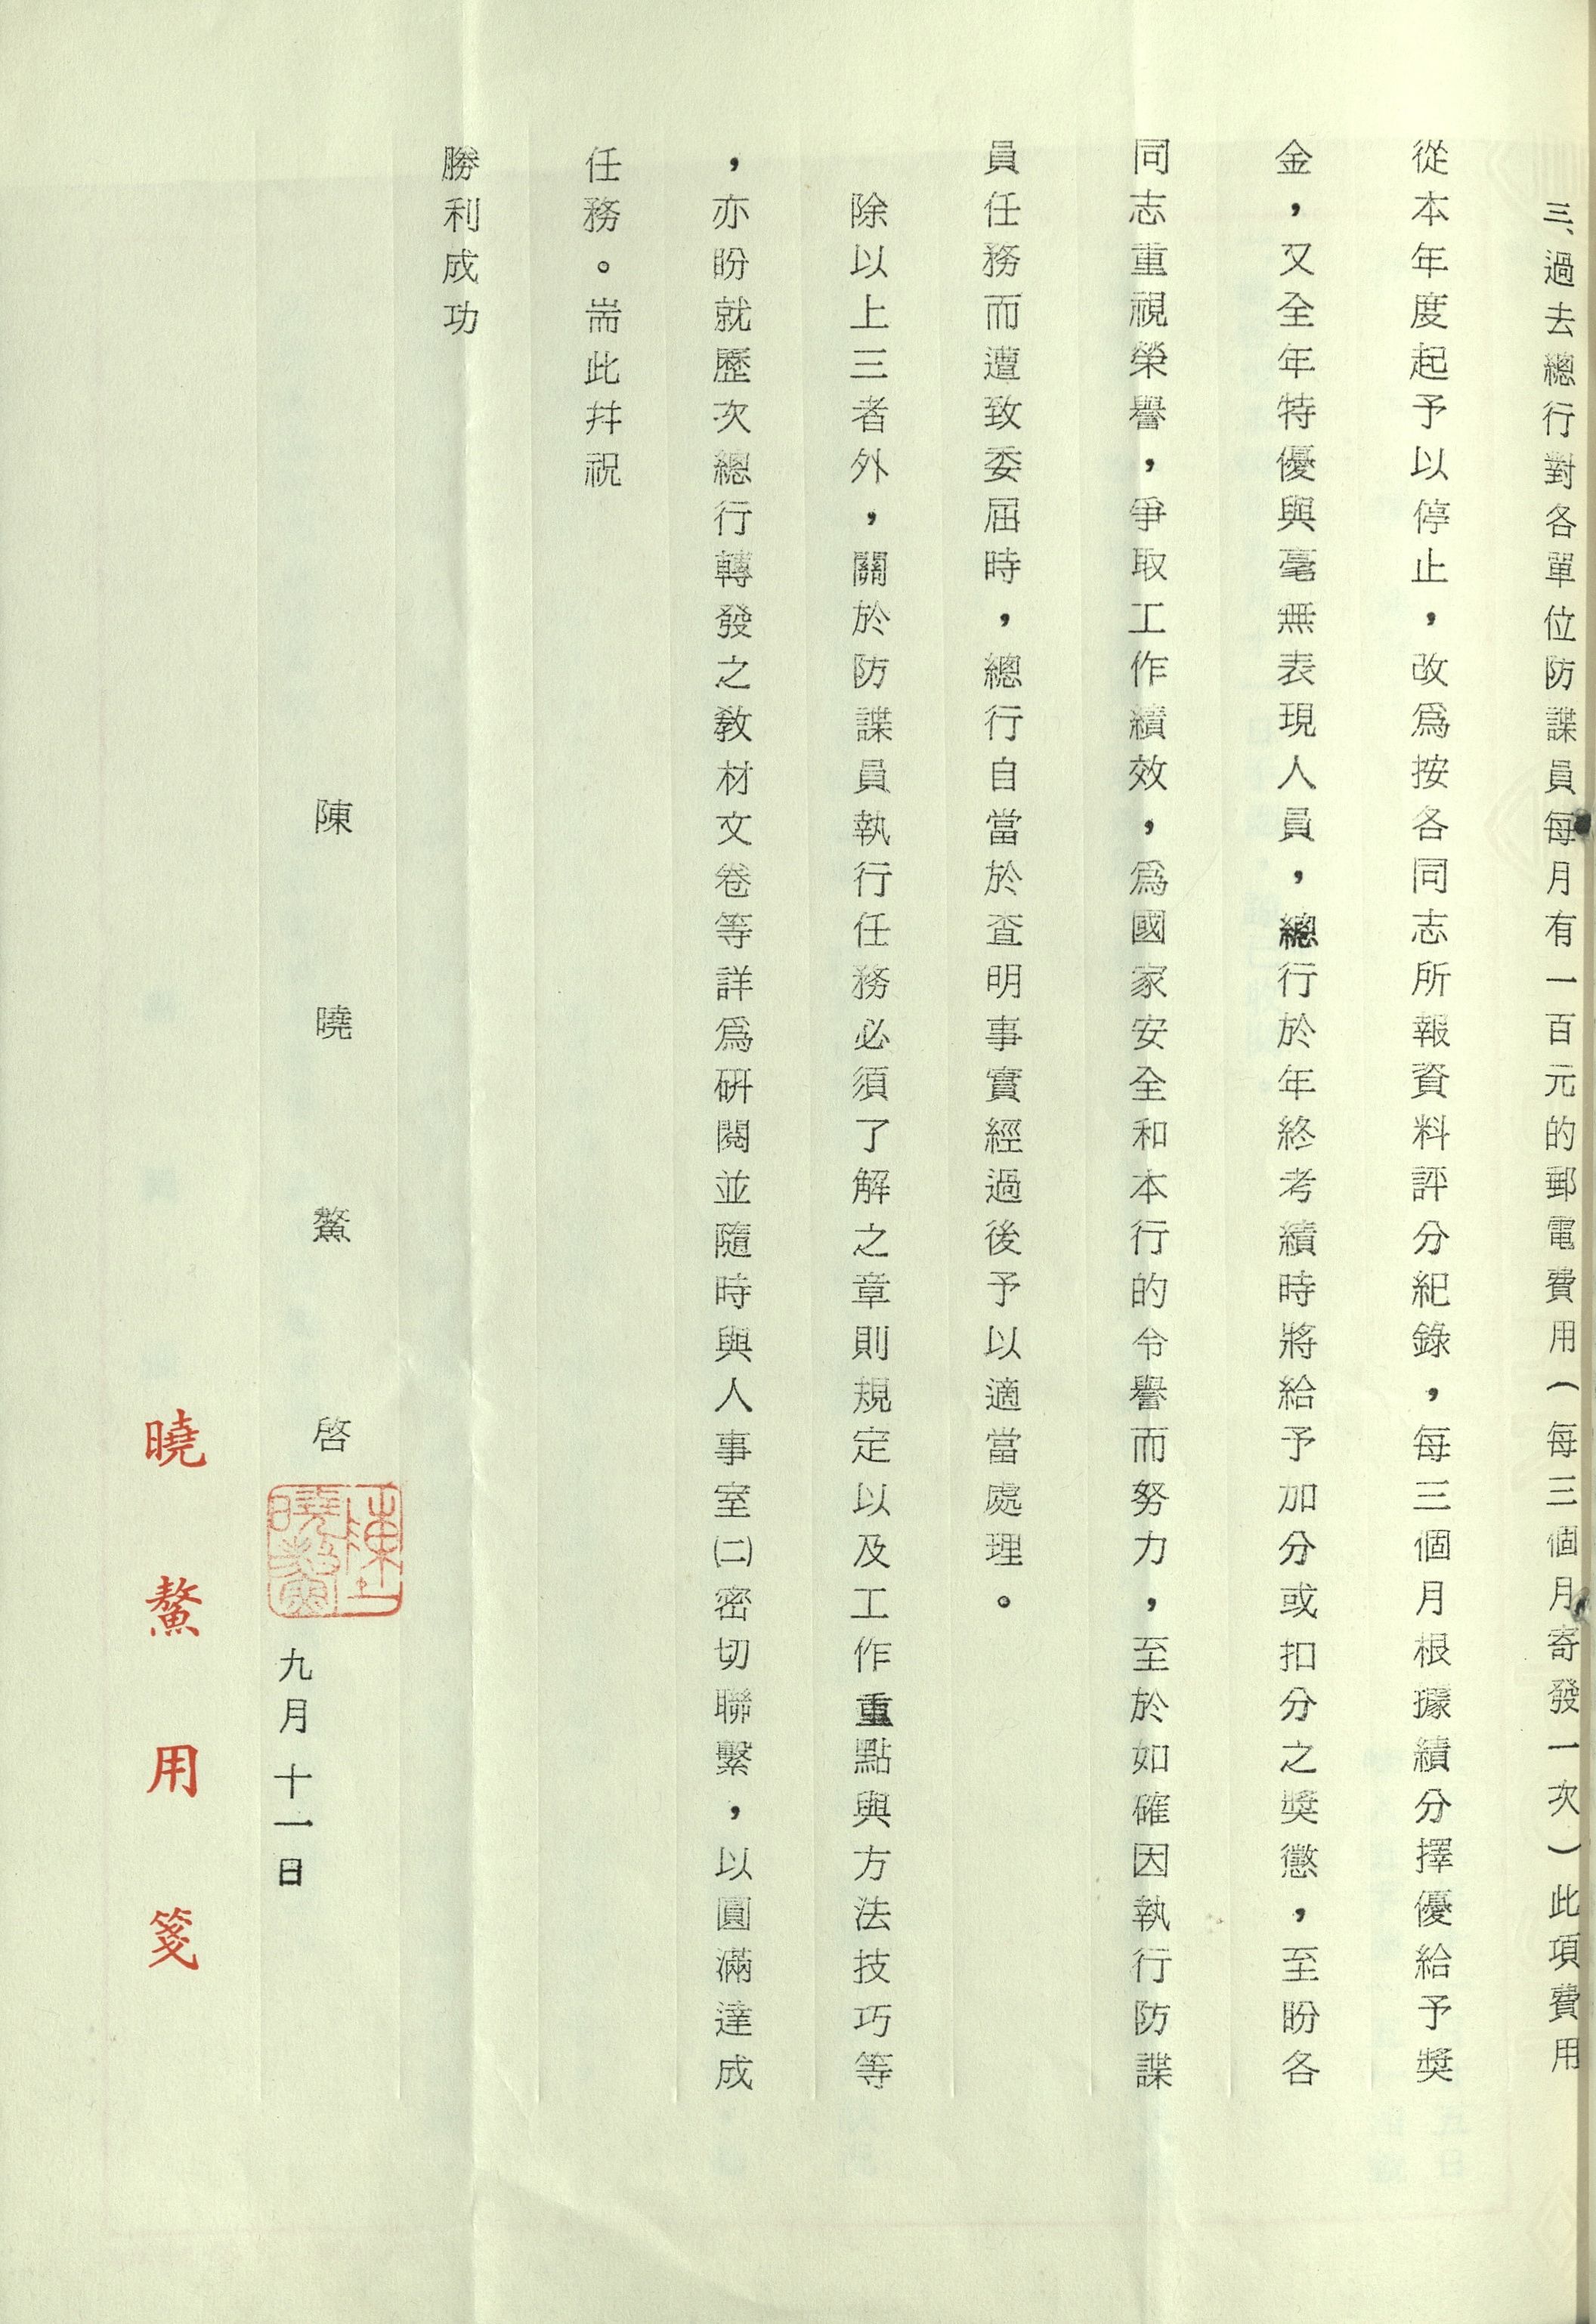 三、過去總行對各單位防諜員每月有一百元的郵電費用（每三個月寄發一次）此項費用
從本年度起予以停止，改爲按各同志所報資料評分紀錄，每三個月根據績分擇優給予獎
金，又全年特優與毫無表現人員，總行於年終考績時將給予加分或扣分之獎懲，至盼各
同志重視榮譽，爭取工作績效，爲國家安全和本行的令譽而努力，至於如確因執行防諜
員任務而遭致委屈時，總行自當於查明事實經過後予以適當處理。
除以上三者外，關於防諜員執行任務必須了解之章則規定以及工作重點與方法技巧等
，亦盼就歷次總行轉發之教材文卷等詳爲研閱並隨時與人事室㈡密切聯繫，以圓滿達成
任務。耑此幷祝
勝利成功
陳曉鰲啓
陳曉鰲
九月十一日
曉鰲用箋